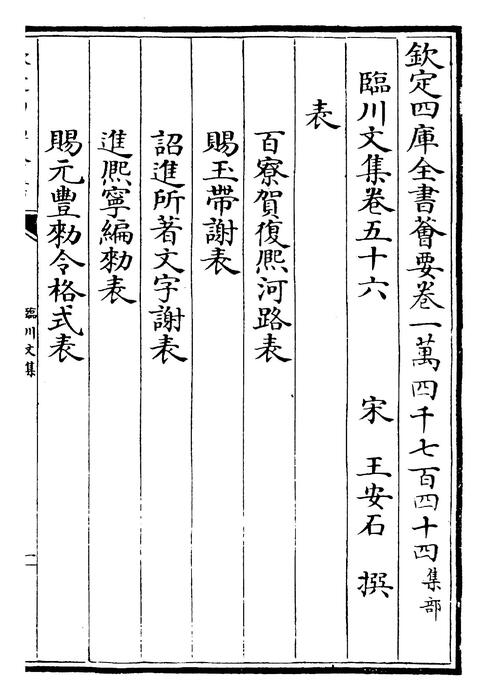 欽定四庫全書薈要卷一萬四千七百四十四 集部
臨川文集卷五十六 宋 王安石 撰
表
百寮賀復熈河路表
賜玉帶謝表
詔進所著文字謝表
進熈寧編勑表
賜元豐勑令格式表
臨川文集
一